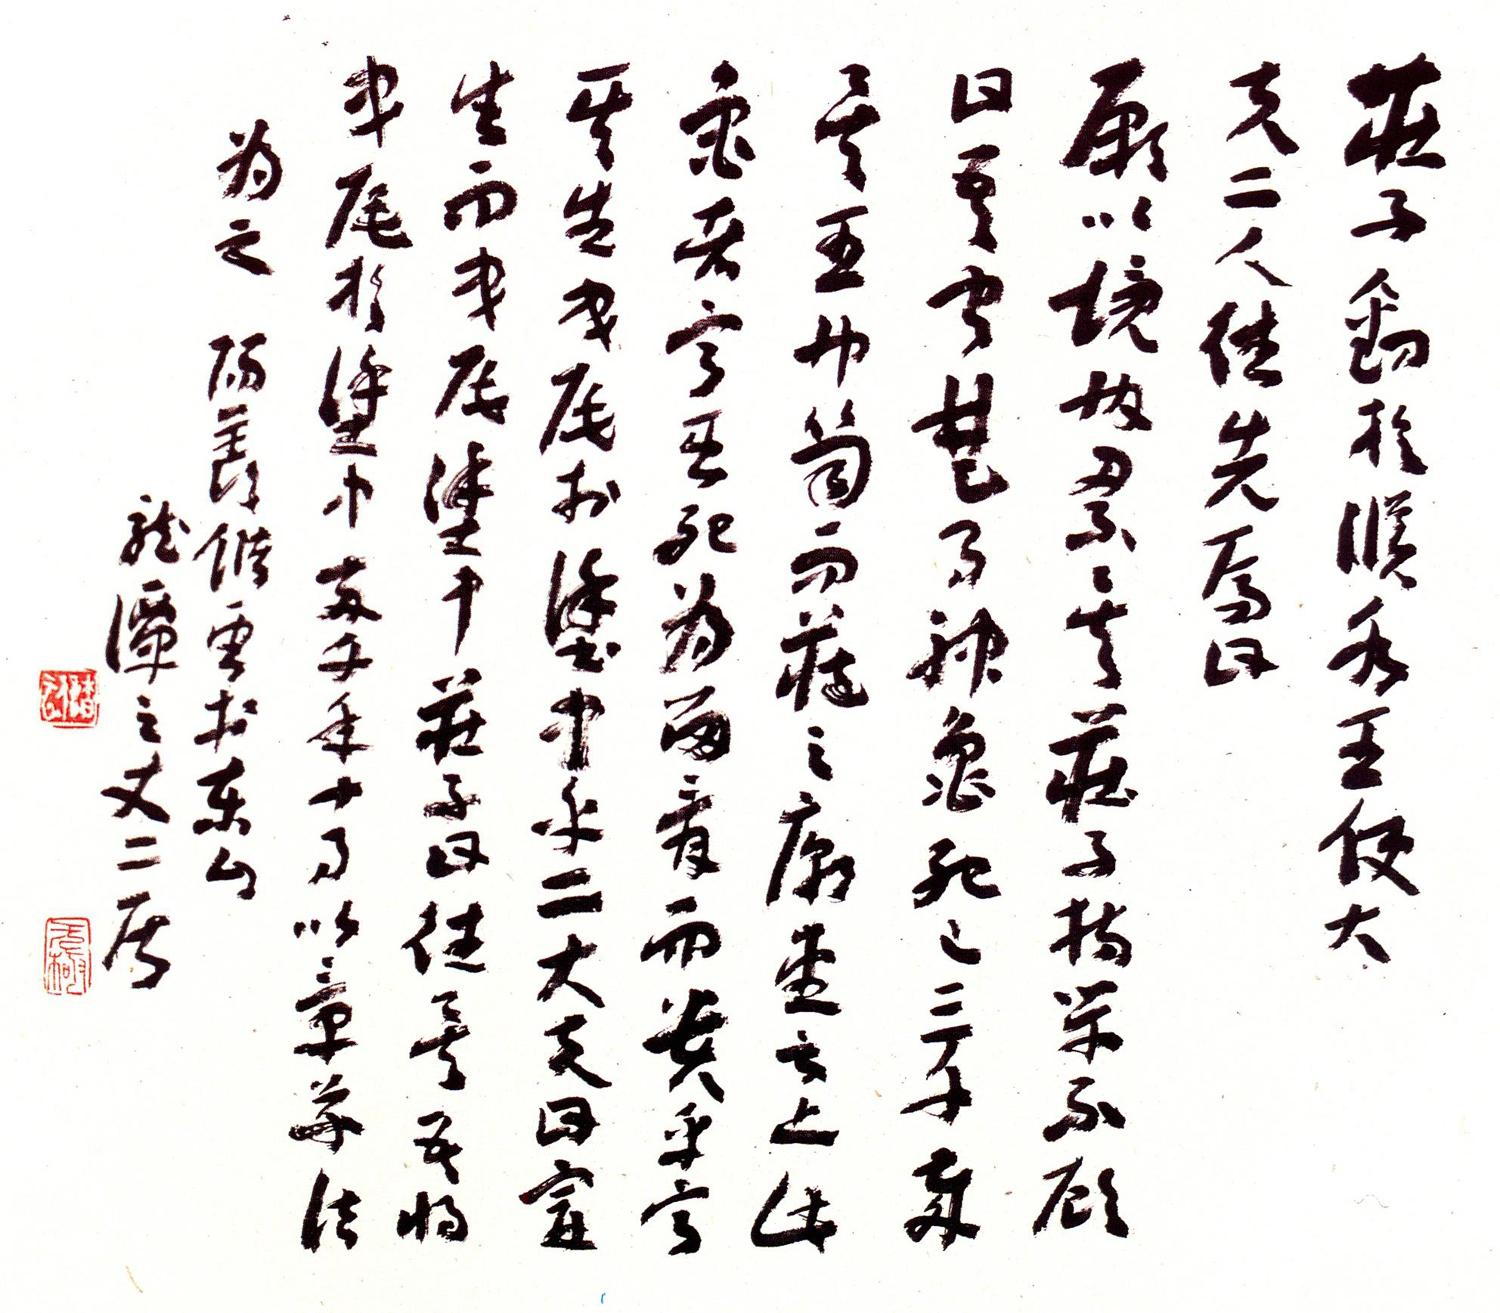 莊子釣於濮水王使大
夫二人往先焉曰
願以境內累矣莊子持竿不顧
曰吾聞楚有神龜死已三千歲
矣王巾笥而藏之廟堂之上此
龜者寧其死為留骨而貴乎寧
其生曳尾於塗中乎二大夫曰寧
生而曳尾塗中莊子曰往矣吾將
曳尾於塗中年十月以章草法
為之 陽羨儲雲於東山
龍潭之丈二居